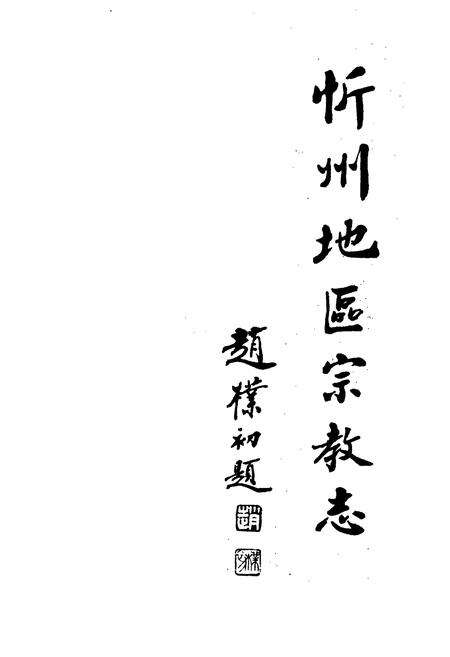 忻州地區宗教志
趙樸初題
趙